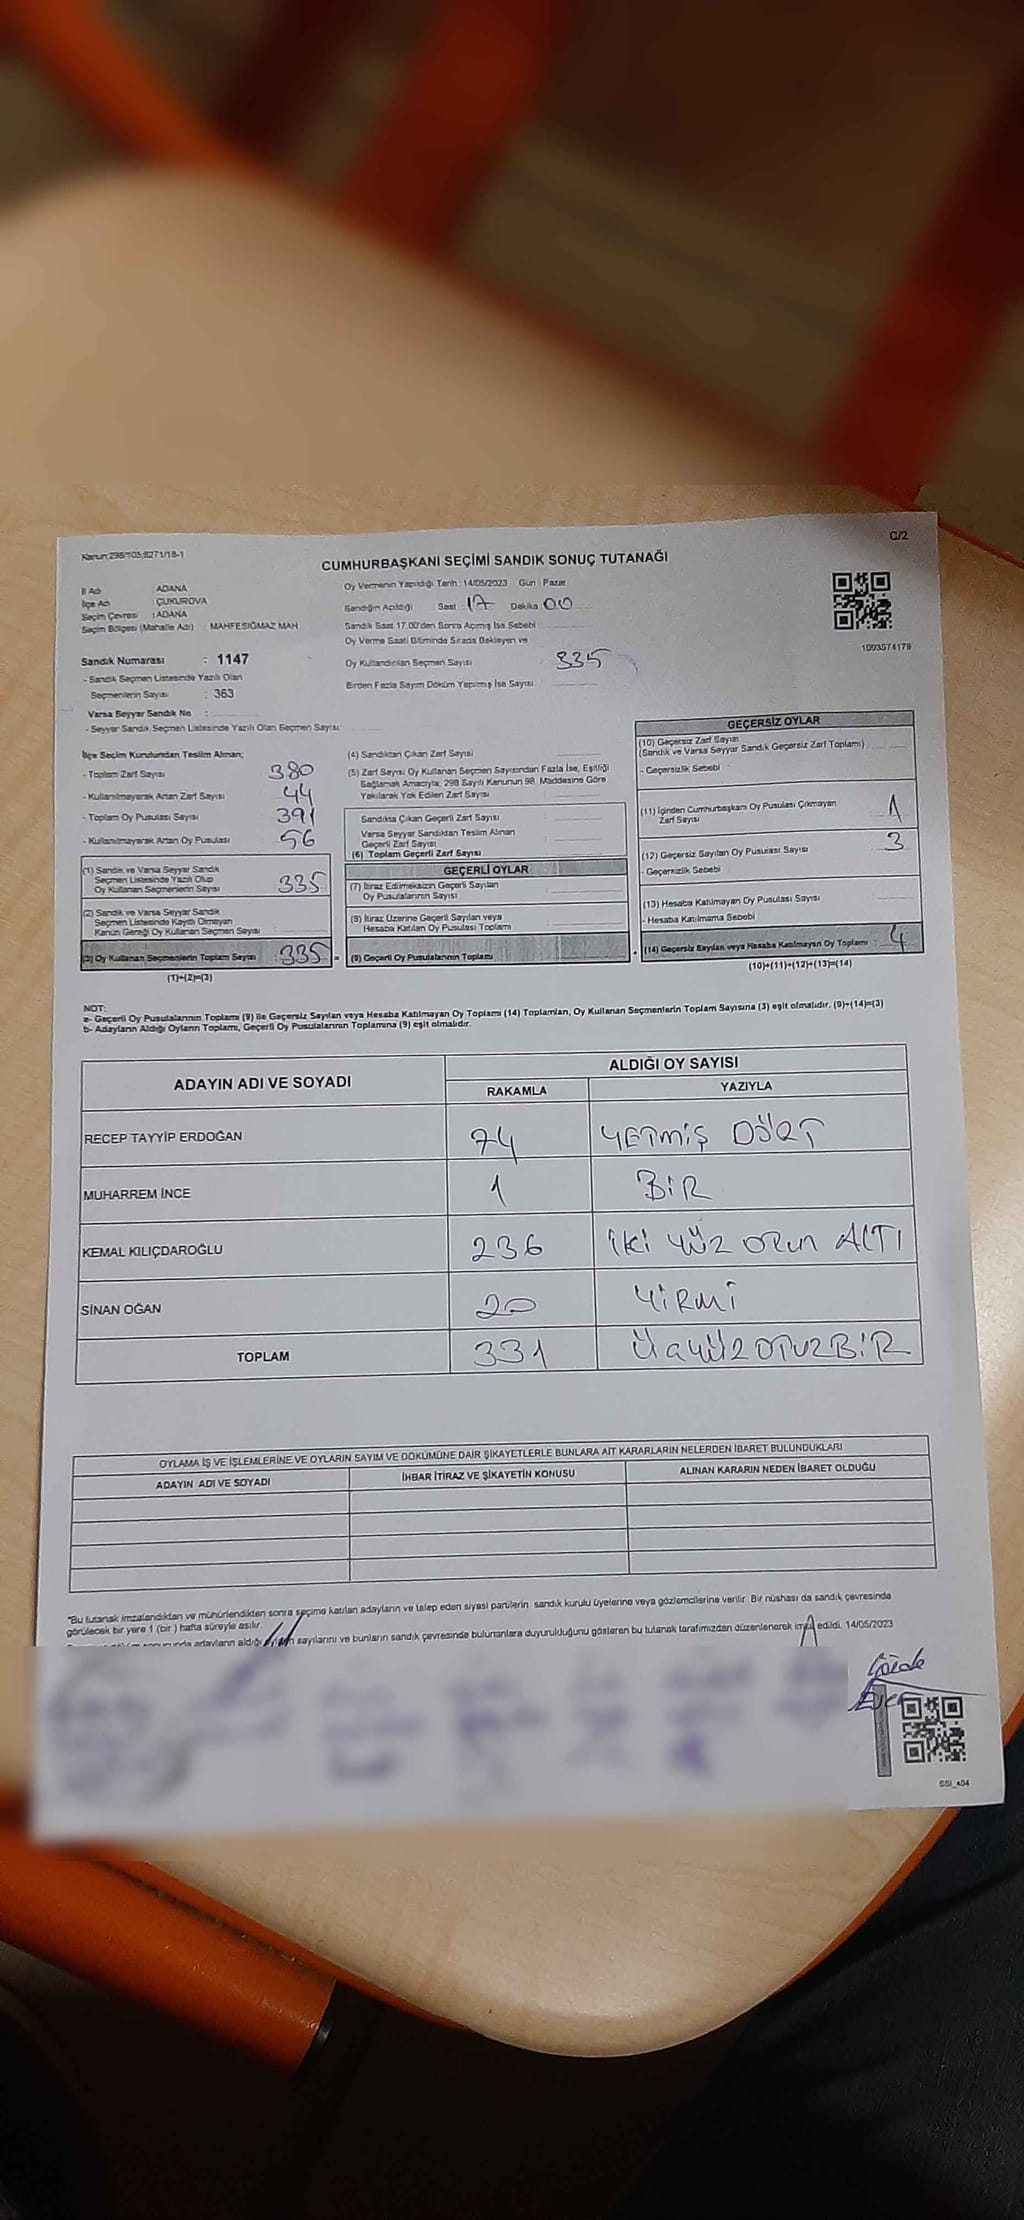 Kanun:298/105;6271/18-1
C/2
CUMHURBAŞKANI SEÇİMİ SANDIK SONUÇ TUTANAĞI
İl Adı : ADANA
İlçe Adı : ÇUKUROVA
Seçim Çevresi : ADANA
Seçim Bölgesi (Mahalle Adı) : MAHFESIĞMAZ MAH
Oy Vermenin Yapıldığı Tarih : 14/05/2023 Gün : Pazar
Sandığın Açıldığı Saat 17 Dakika 00
Sandık Saat 17.00'den Sonra Açılmış İse Sebebi
Oy Verme Saati Bitiminde Sırada Bekleyen ve
Oy Kullandırılan Seçmen Sayısı 335
Birden Fazla Sayım Döküm Yapılmış İse Sayısı
1093574179
Sandık Numarası : 1147
- Sandık Seçmen Listesinde Yazılı Olan
Seçmenlerin Sayısı : 363
Varsa Seyyar Sandık No :
- Seyyar Sandık Seçmen Listesinde Yazılı Olan Seçmen Sayısı:
İlçe Seçim Kurulundan Teslim Alınan;
- Toplam Zarf Sayısı 380
- Kullanılmayarak Artan Zarf Sayısı 44
- Toplam Oy Pusulası Sayısı 391
- Kullanılmayarak Artan Oy Pusulası 56
(1) Sandık ve Varsa Seyyar Sandık
Seçmen Listesinde Yazılı Olup
Oy Kullanan Seçmenlerin Sayısı 335
(2) Sandık ve Varsa Seyyar Sandık
Seçmen Listesinde Kayıtlı Olmayan
Kanun Gereği Oy Kullanan Seçmen Sayısı
(3) Oy Kullanan Seçmenlerin Toplam Sayısı 335
(1)+(2)=(3)
(4) Sandıktan Çıkan Zarf Sayısı
(5) Zarf Sayısı Oy Kullanan Seçmen Sayısından Fazla İse, Eşitliği
Sağlamak Amacıyla, 298 Sayılı Kanunun 98. Maddesine Göre
Yakılarak Yok Edilen Zarf Sayısı
Sandıkta Çıkan Geçerli Zarf Sayısı
Varsa Seyyar Sandıktan Teslim Alınan
Geçerli Zarf Sayısı
(6) Toplam Geçerli Zarf Sayısı
GEÇERLİ OYLAR
(7) İtiraz Edilmeksizin Geçerli Sayılan
Oy Pusulalarının Sayısı
(8) İtiraz Üzerine Geçerli Sayılan veya
Hesaba Katılan Oy Pusulası Toplamı
(9) Geçerli Oy Pusulalarının Toplamı
GEÇERSİZ OYLAR
(10) Geçersiz Zarf Sayısı
(Sandık ve Varsa Seyyar Sandık Geçersiz Zarf Toplamı)
- Geçersizlik Sebebi
(11) İçinden Cumhurbaşkanı Oy Pusulası Çıkmayan
Zarf Sayısı 1
(12) Geçersiz Sayılan Oy Pusulası Sayısı 3
- Geçersizlik Sebebi
(13) Hesaba Katılmayan Oy Pusulası Sayısı
- Hesaba Katılmama Sebebi
(14) Geçersiz Sayılan veya Hesaba Katılmayan Oy Toplamı 4
(10)+(11)+(12)+(13)=(14)
NOT:
a- Geçerli Oy Pusulalarının Toplamı (9) ile Geçersiz Sayılan veya Hesaba Katılmayan Oy Toplamı (14) Toplamları, Oy Kullanan Seçmenlerin Toplam Sayısına (3) eşit olmalıdır. (9)+(14)=(3)
b- Adayların Aldığı Oyların Toplamı, Geçerli Oy Pusulalarının Toplamına (9) eşit olmalıdır.
ADAYIN ADI VE SOYADI ALDIĞI OY SAYISI
RAKAMLA YAZIYLA
RECEP TAYYİP ERDOĞAN 74 YETMİŞ DÖRT
MUHARREM İNCE 1 BİR
KEMAL KILIÇDAROĞLU 236 İKİ YÜZ OTUZ ALTI
SİNAN OĞAN 20 YİRMİ
TOPLAM 331 ÜÇ YÜZ OTUZ BİR
OYLAMA İŞ VE İŞLEMLERİNE VE OYLARIN SAYIM VE DÖKÜMÜNE DAİR ŞİKAYETLERLE BUNLARA AİT KARARLARIN NELERDEN İBARET BULUNDUKLARI
ADAYIN ADI VE SOYADI İHBAR İTİRAZ VE ŞİKAYETİN KONUSU ALINAN KARARIN NEDEN İBARET OLDUĞU
"Bu tutanak imzalandıktan ve mühürlendikten sonra seçime katılan adayların ve talep eden siyasi partilerin sandık kurulu üyelerine veya gözlemcilerine verilir. Bir nüshası da sandık çevresinde
görülecek bir yere 1 (bir) hafta süreyle asılır.
adayların aldığı oyların sayılarını ve bunların sandık çevresinde bulunanlara duyurulduğunu gösteren bu tutanak tarafımızdan düzenlenerek imza edildi. 14/05/2023
Gözde
SSI_404